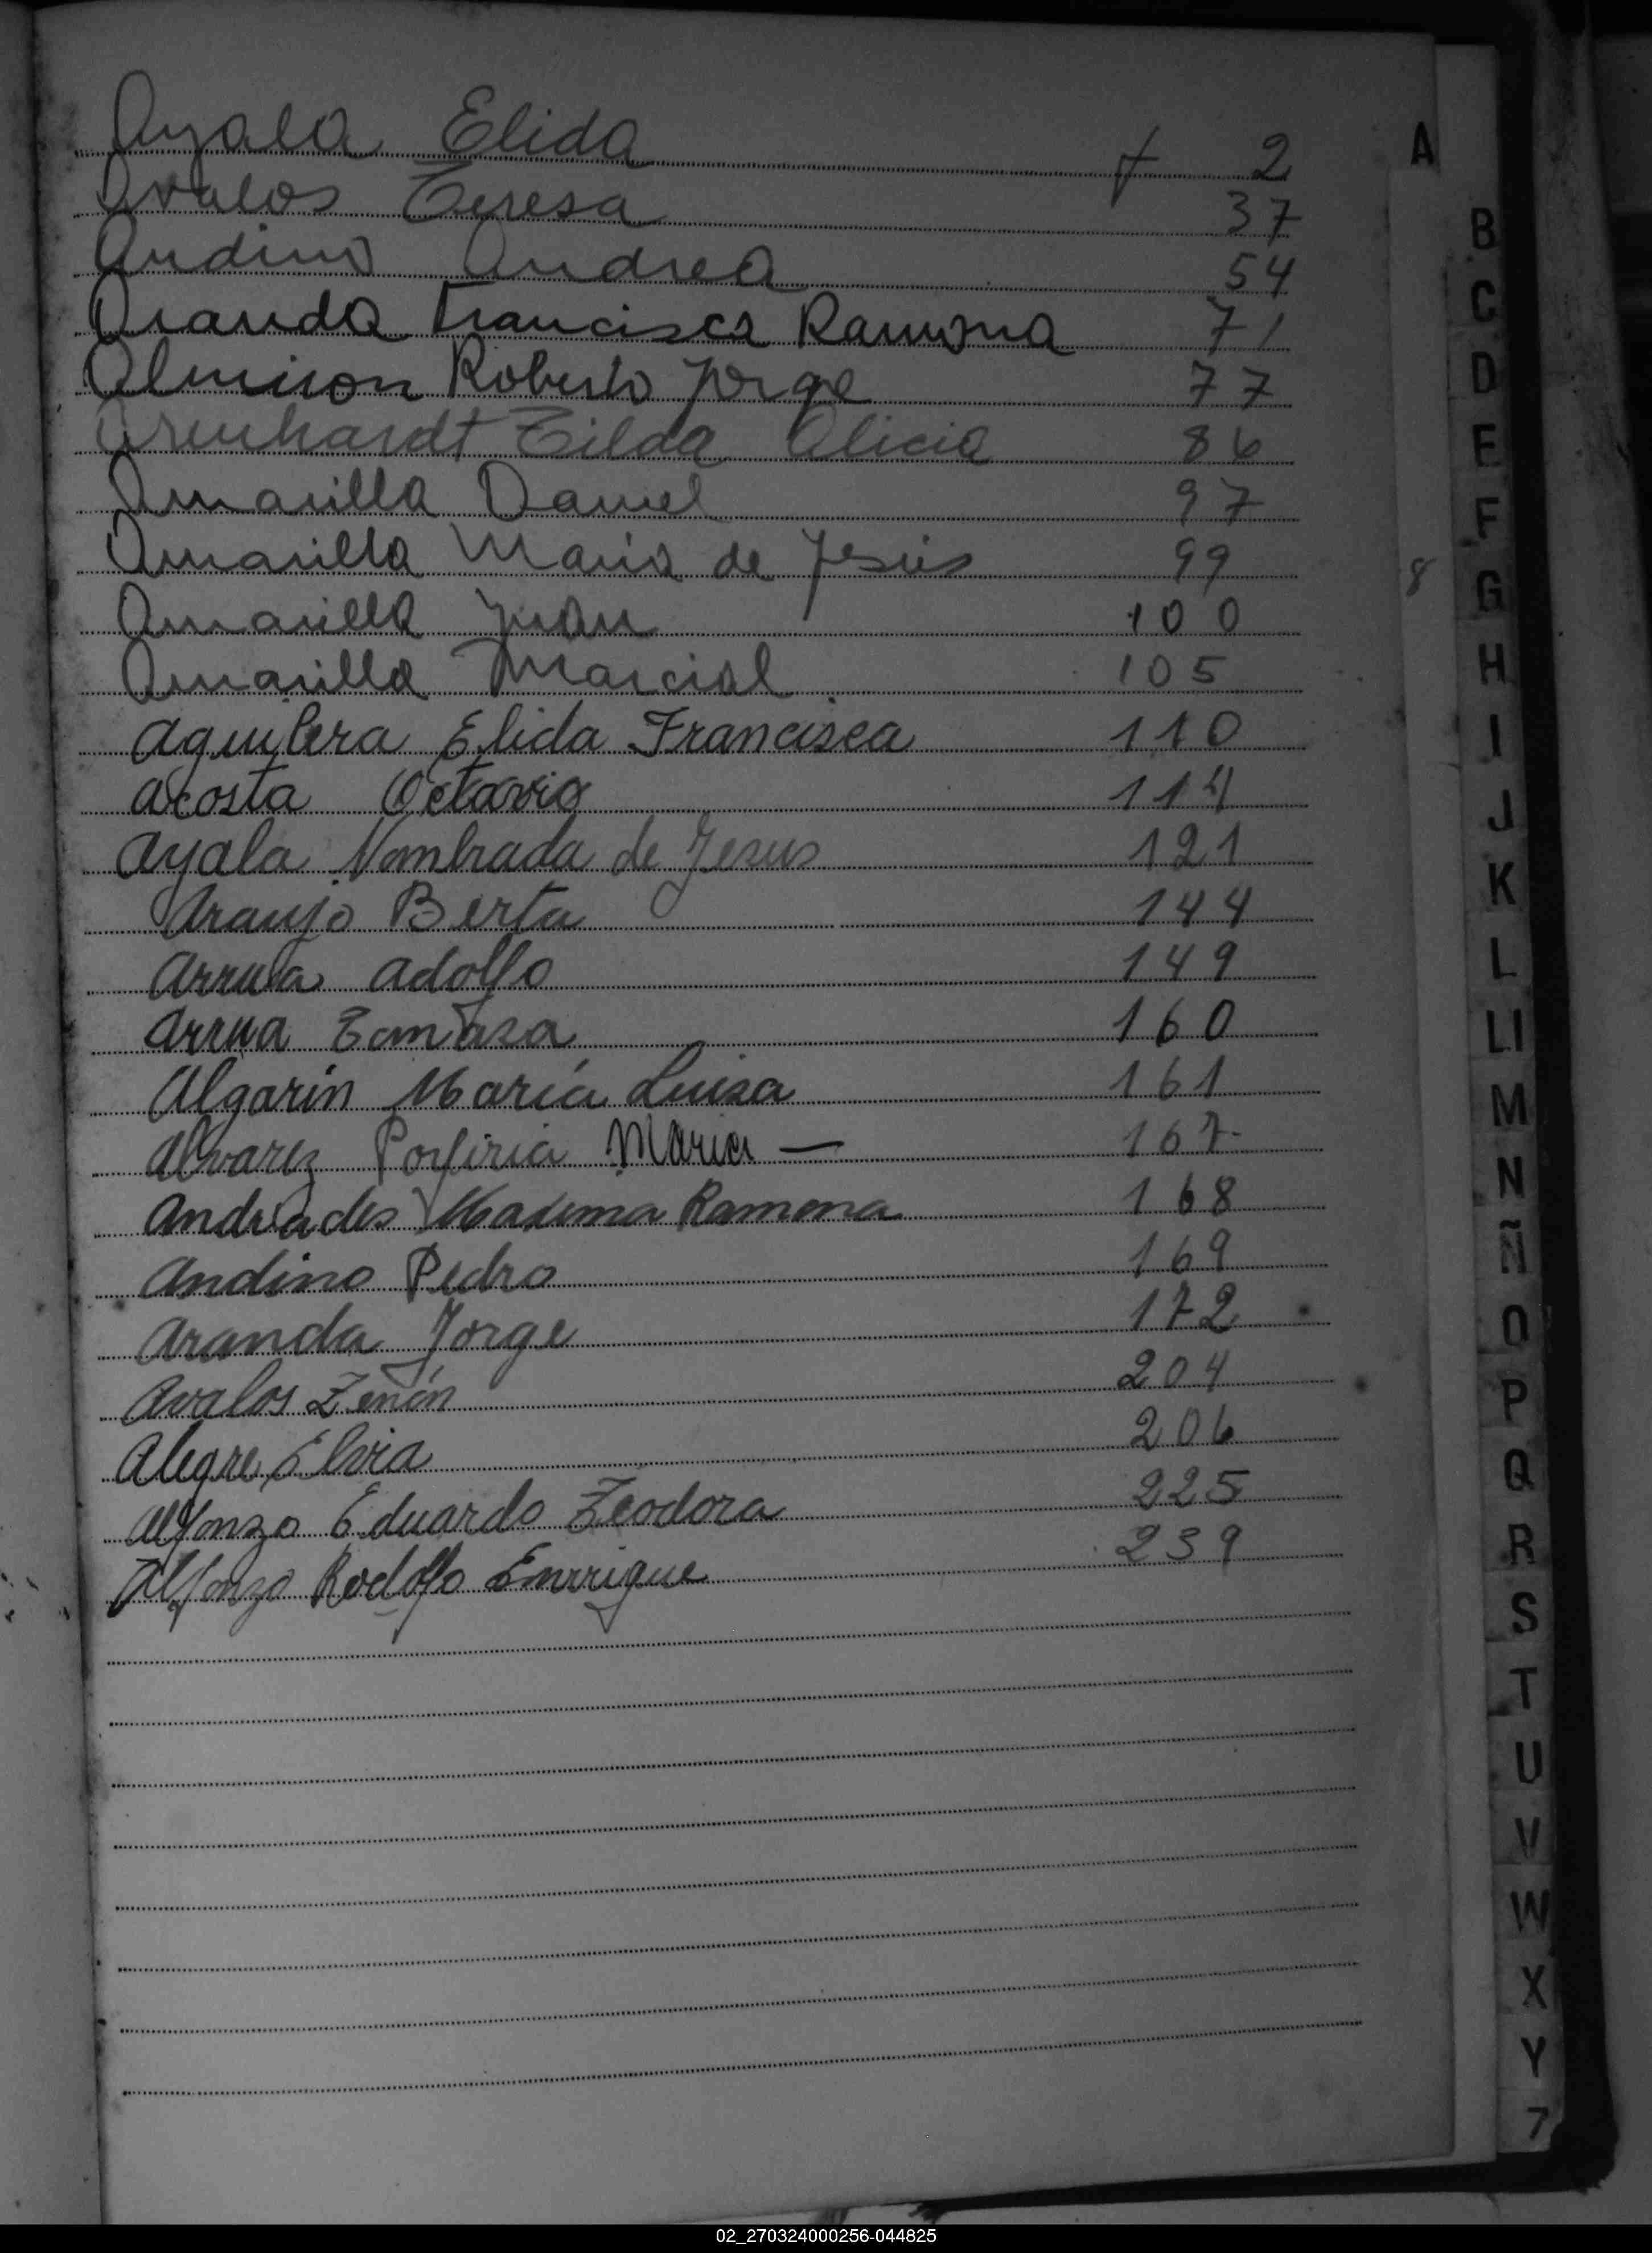 Ayala Elida f 2
Avalos Teresa 37
Andino Andrea 54
Aranda Francisca Ramona 71
Almiron Roberto Jorge 77
Arenhardt Tilda Alicia 86
Amarilla Daniel 97
Amarilla Maria de Jesús 99
Amarilla Juan 100
Amarilla Marcial 105
Aguilera Elida Francisca 110
Acosta Octavio 114
Ayala Nombrada de Jesus 121
Araujo Berta 144
Arrua Adolfo 149
Arrua Tomasa 160
Algarin María Luisa 161
Alvarez Porfiria Maria — 167
Andrades Maxima Ramona 168
Andino Pedro 169
Aranda Jorge 172
Avalos Zenón 204
Alegre Elvia 206
Alfonzo Eduardo Teodora 225
Alfonzo Rodolfo Enrrique 239
8
A
B
C
D
E
F
G
H
I
J
K
L
Ll
M
N
Ñ
O
P
Q
R
S
T
U
V
W
X
Y
02_270324000256-044825